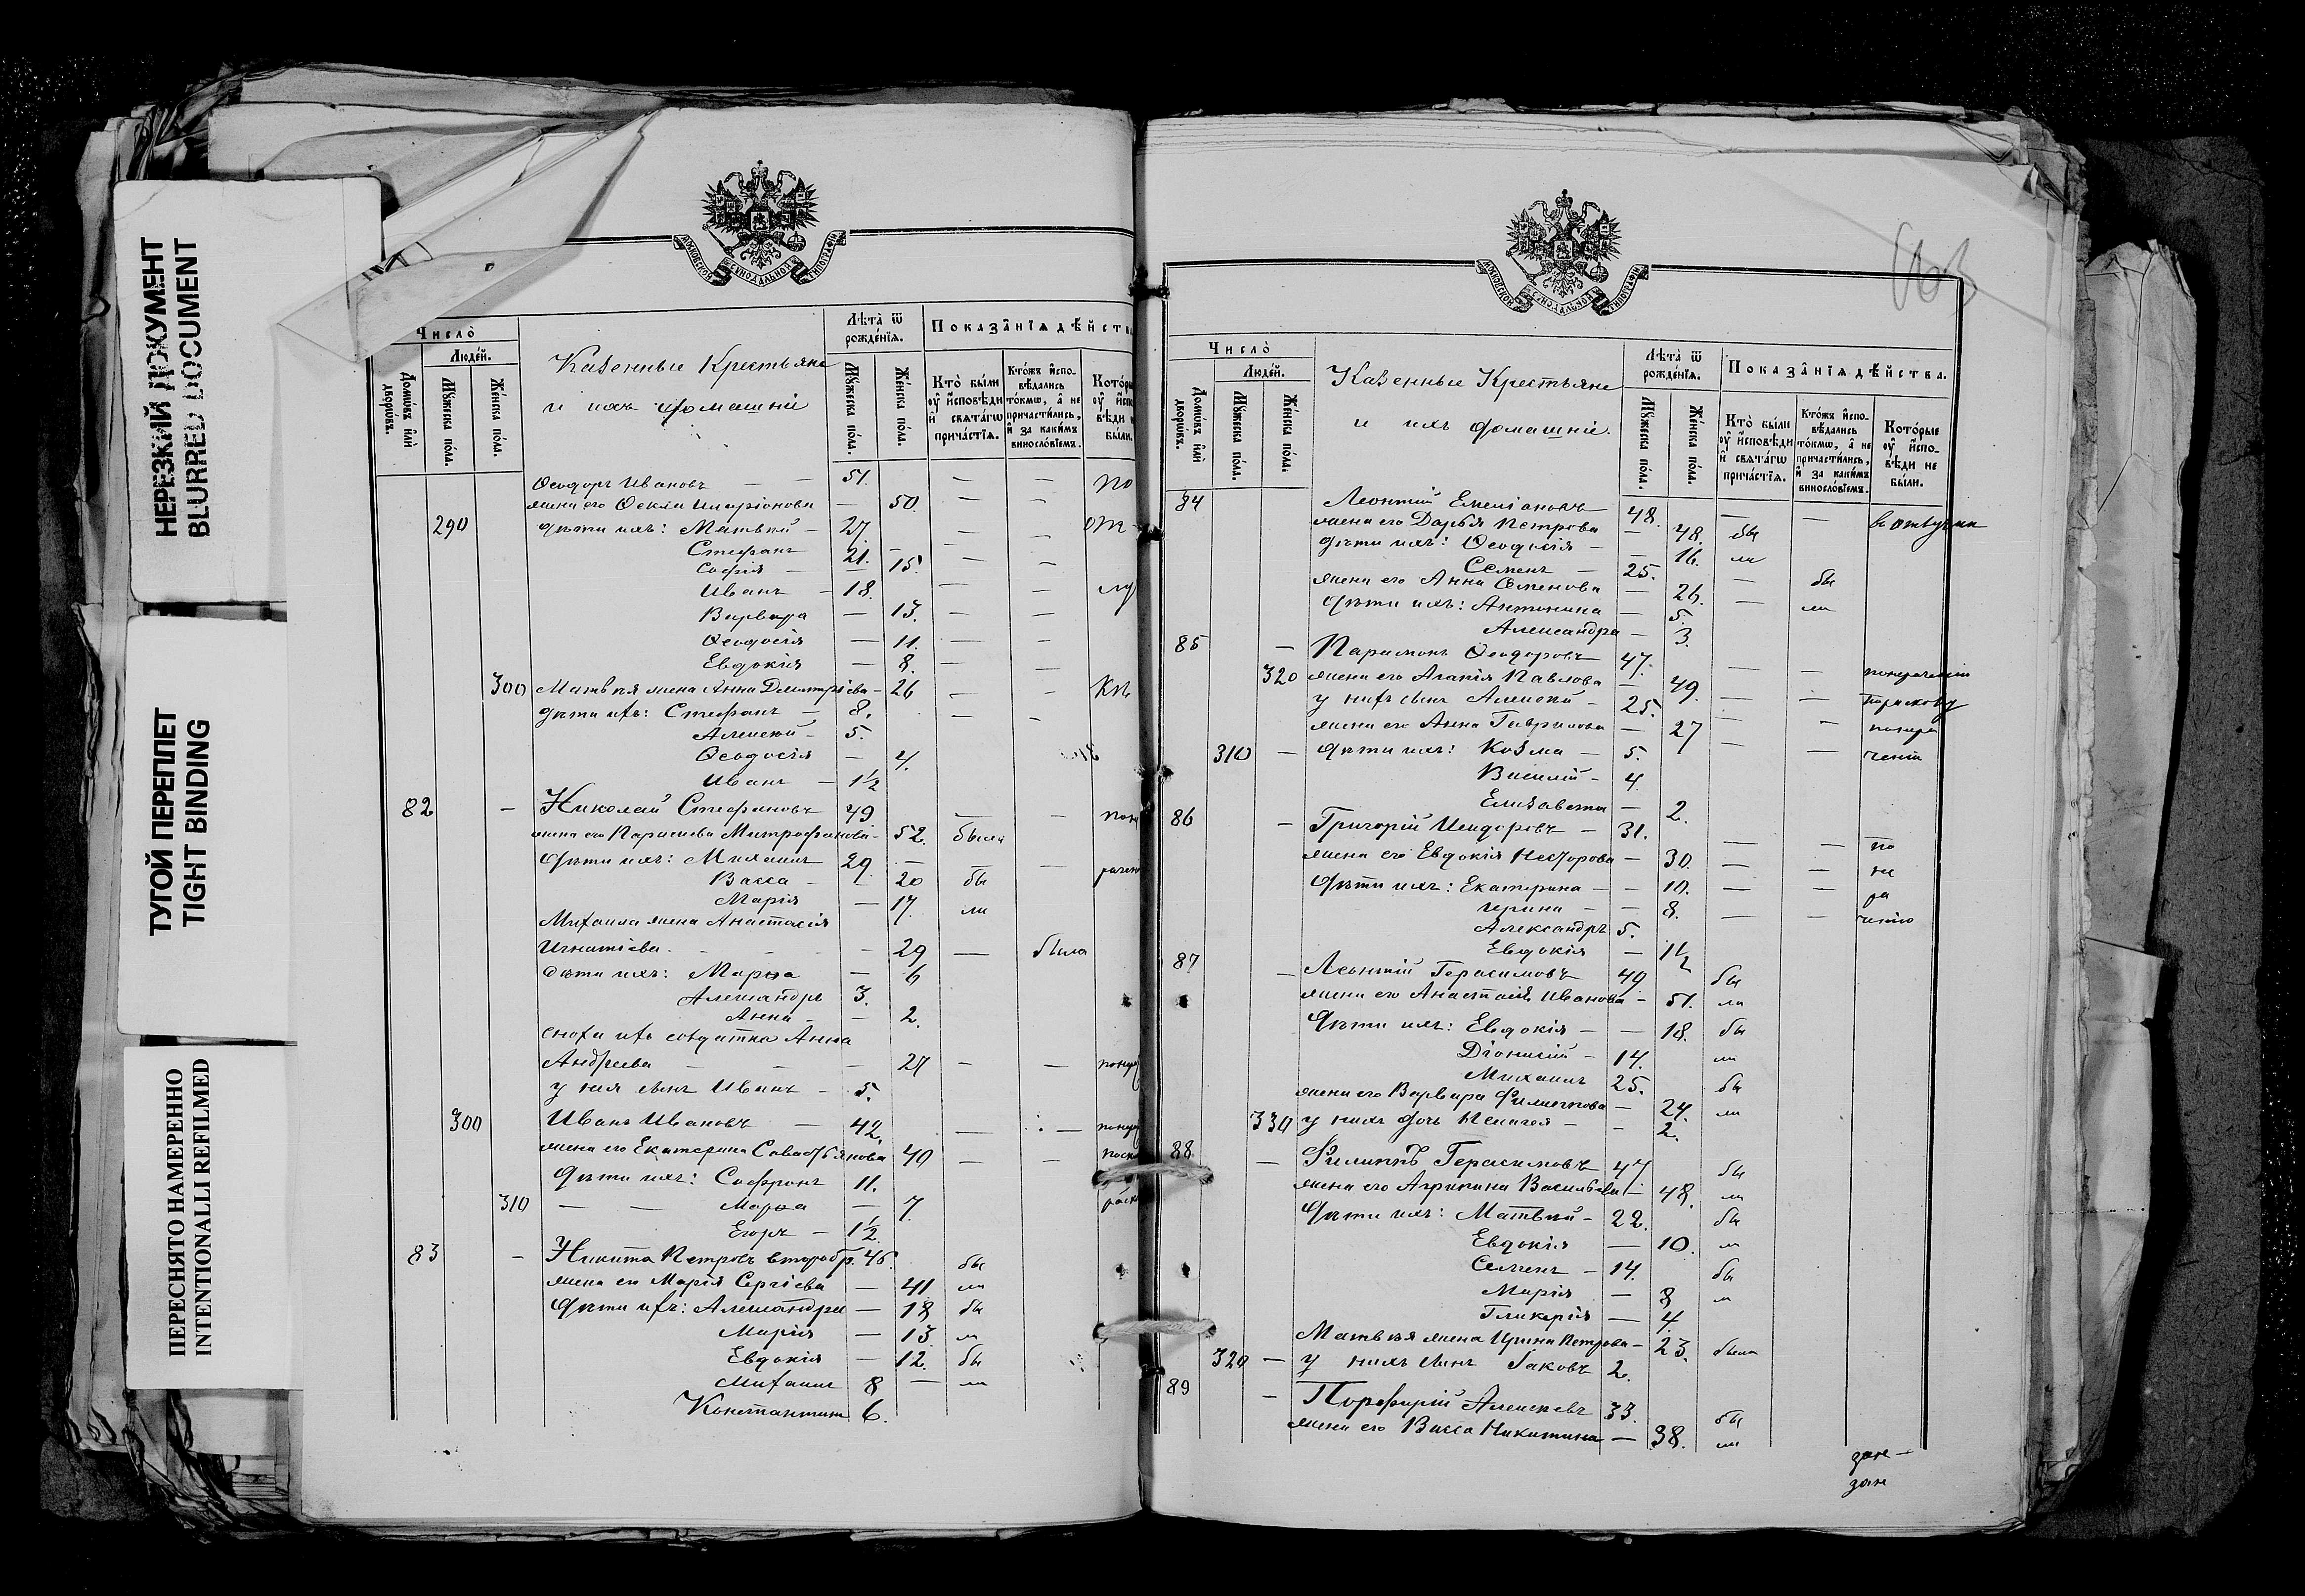 НЕРЕЗКИЙ ДОКУМЕНТ
BLURRED DOCUMENT
ТУГОЙ ПЕРЕПЛЕТ
TIGHT BINDING
ПЕРЕСНЯТО НАМЕРЕННО
INTENTIONALLI REFILMED
МОСКОВСКОЙ СУНОДАЛЬНОЙ ТИПОГРАФІИ
Число̀
Людей.
Домѡвъ и҆лѝ дворѡвъ.
Мꙋ́жеска по́ла.
Же́нска по́ла.
Казенные Крестьяне
и ихъ домашніе
Лѣта̀ ѿ рожде́нїѧ.
Мꙋ́жеска по́ла.
Же́нска по́ла.
Показа̑нїѧ дѣ́йств
Кто̀ бы́ли ᲂу҆ и҆сповѣ́ди и҆ свѧта́гѡ причастїѧ.
Кто́жъ и҆спо-вѣ́дались то́кмѡ, а҆ не причасти́лись, и҆ за каки́мъ винослові́емъ.
Ѳеодоръ Ивановъ — — 51. — —
жена его Ѳекла Иларіонова — 50.
290 дѣти ихъ: Матвѣй — 27. — —
Стефанъ 21. —
Софія — — 15. — —
Иванъ — 18. — —
Варвара — 13. — —
Ѳеодосія — 11. — —
Евдокія — 8. — —
300 Матвѣя жена Анна Димитріева — 26 — —
дѣти ихъ: Стефанъ — 8. — —
Алексѣй — 5.
Ѳеодосія — 4.
Иванъ — 1½
82 — Николай Стефановъ 49. — —
жена его Параскева Митрофанова — 52. была
дѣти ихъ: Михаилъ 29. — —
Васса — — 20 бы
Марія — 17. ли
Михаила жена Анастасія
Игнатіева. — — — 29 — была
дѣти ихъ: Марѳа — 6
Александръ 3.
Анна — — 2.
сноха ихъ солдатка Анна
Андреева — — — 27 — —
у нея сынъ Иванъ — 5.
300 Иванъ Ивановъ — 42. — —
жена его Екатерина Савастьянова 40 — —
дѣти ихъ: Софронъ 11.
310 — — Марѳа — 7.
Егоръ — 1½
83 — Никита Петровъ второбр. 46. бы
жена его Марія Сергіева — 41. ли
дѣти ихъ: Александра — 18 бы
Марія — 13 ли
Евдокія — 12. бы
Михаилъ 8 — ли
Константинъ 6.
МОСКОВСКОЙ СУНОДАЛЬНОЙ ТИПОГРАФІИ
Число̀
Людей.
Домѡвъ и҆лѝ дворѡвъ.
Мꙋ́жеска по́ла.
Же́нска по́ла.
Казенные Крестьяне
и ихъ домашніе.
Лѣта̀ ѿ рожде́нїѧ.
Мꙋ́жеска по́ла.
Же́нска по́ла.
Показа̑нїѧ дѣ́йства.
Кто̀ бы́ли ᲂу҆ и҆сповѣ́ди и҆ свѧта́гѡ причастїѧ.
Кто́жъ и҆спо-вѣ́дались то́кмѡ, а҆ не причасти́лись, и҆ за каки́мъ винослові́емъ.
Кото́рые ᲂу҆ и҆спо-вѣ́ди не бы́ли.
84 Леонтій Емеліановъ 48. — — въ отлучкѣ
жена его Дарья Петрова — 48. бы
дѣти ихъ: Ѳеодосія — — 16. ла
Семенъ — 25.
жена его Анна Семенова — 26. — бы
дѣти ихъ: Антонина — 5. ли
Александра — 3.
85 — Парамонъ Ѳеодоровъ 47. — —
320 жена его Агапія Павлова — 49
у нихъ сынъ Алексѣй — 25. — —
жена его Анна Гаврилова — 27 — —
310 — дѣти ихъ: Козма — 5.
Василій — 4.
Елизавета — 2.
86 — Григорій Исидоровъ — 31. — — по
жена его Евдокія Несторова — 30. — — не
дѣти ихъ: Екатерина — — 10. — — ра
Ирина — — 8. — — ченію
Александръ 5.
Евдокія — 1½
87 — Леонтій Герасимовъ 49 бы
жена его Анастасія Иванова — 51. ли
дѣти ихъ: Евдокія — — 18. бы
Діонисій — 14. ли
Михаилъ 25. бы
жена его Варвара Филиппова — 24. ли
330 у нихъ дочь Пелагея — — 2.
88 — Филиппъ Герасимовъ 47 бы
жена его Агрипина Васильева — 48. ли
дѣти ихъ: Матвѣй — 22. бы
Евдокія — 10. ли
Семенъ — 14. бы
Марія — 8 ли
Гликерія — 4.
Матвѣя жена Ирина Петрова — 23. была
320 — у нихъ сынъ Іаковъ 2.
89 — Порфирій Алексѣевъ 33. бы
жена его Васса Никитина — 38. ли